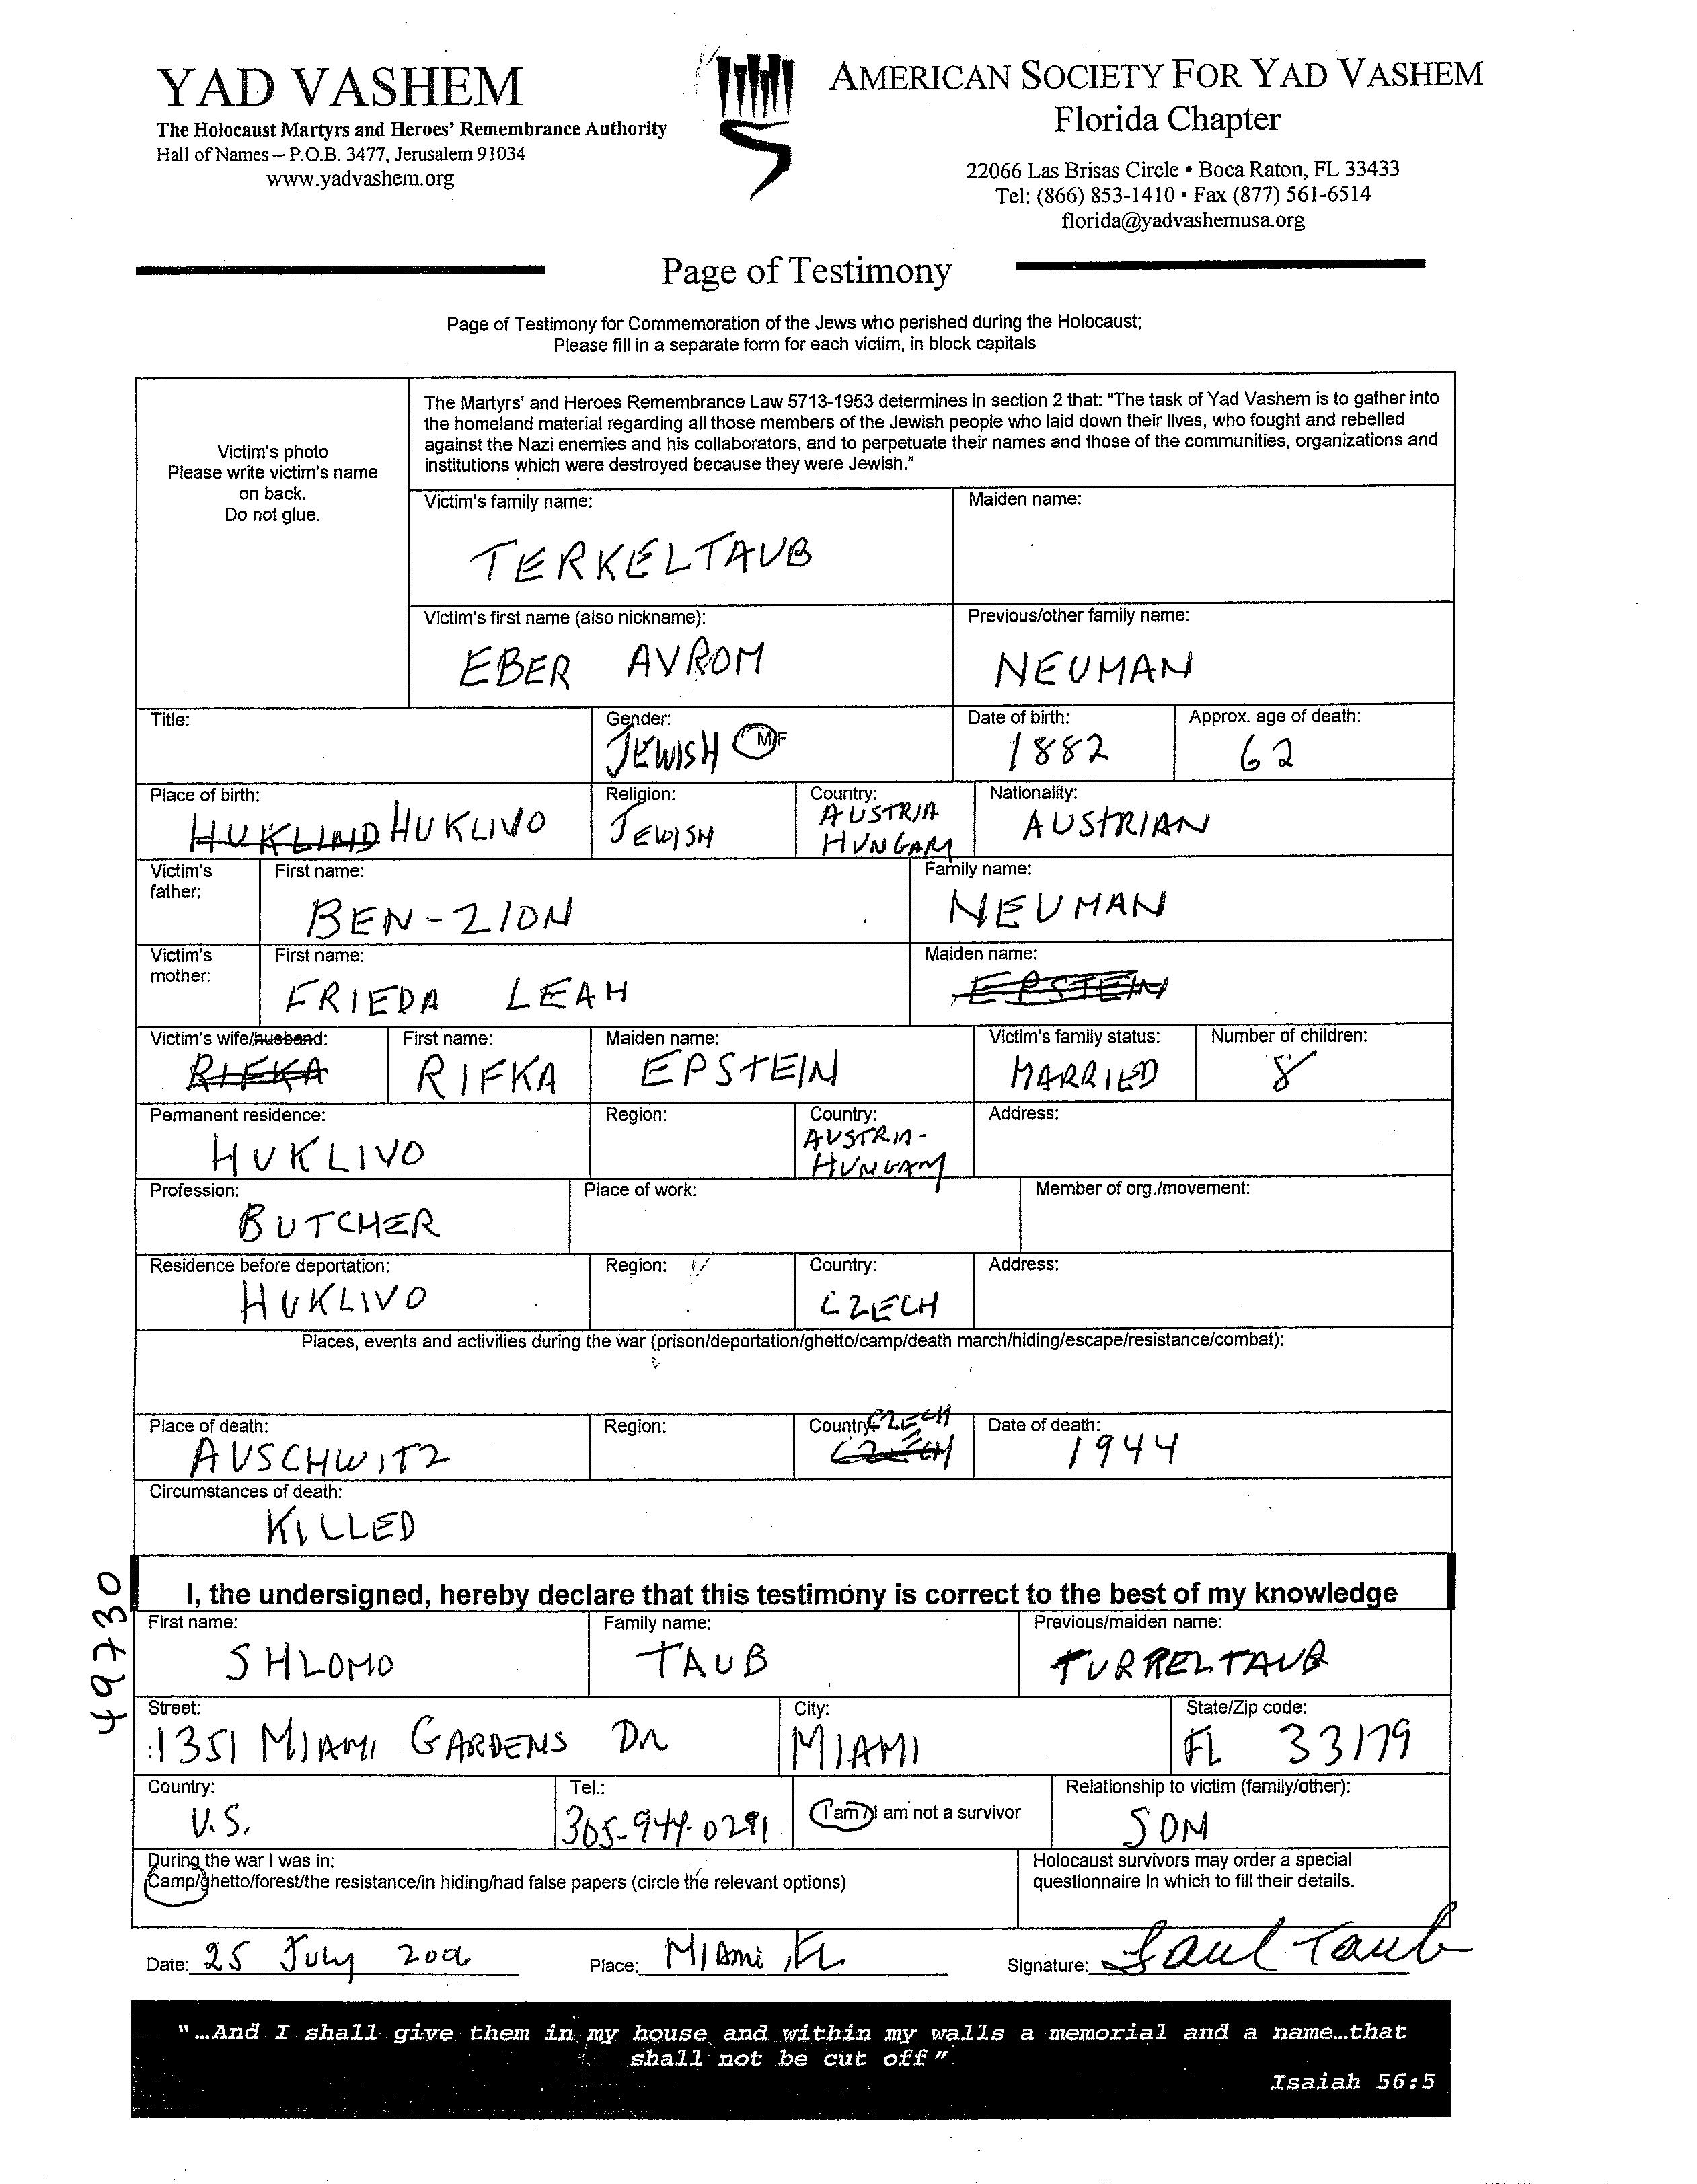 YAD VASHEM
The Holocaust Martyrs and Heroes' Remembrance Authority
Hall of Names – P.O.B. 3477, Jerusalem 91034
www.yadvashem.org
AMERICAN SOCIETY FOR YAD VASHEM
Florida Chapter
22066 Las Brisas Circle • Boca Raton, FL 33433
Tel: (866) 853-1410 • Fax (877) 561-6514
florida@yadvashemusa.org
Page of Testimony
Page of Testimony for Commemoration of the Jews who perished during the Holocaust;
Please fill in a separate form for each victim, in block capitals
Victim's photo
Please write victim's name
on back.
Do not glue.
The Martyrs' and Heroes Remembrance Law 5713-1953 determines in section 2 that: "The task of Yad Vashem is to gather into
the homeland material regarding all those members of the Jewish people who laid down their lives, who fought and rebelled
against the Nazi enemies and his collaborators, and to perpetuate their names and those of the communities, organizations and
institutions which were destroyed because they were Jewish."
Victim's family name: Maiden name:
TERKELTAUB
Victim's first name (also nickname): Previous/other family name:
EBER AVROM NEUMAN
Title: Gender: Date of birth: Approx. age of death:
JEWISH M/F 1882 62
Place of birth: Religion: Country: Nationality:
HUKLIND HUKLIVO JEWISH AUSTRIA HUNGARY AUSTRIAN
Victim's father: First name: Family name:
BEN-ZION NEUMAN
Victim's mother: First name: Maiden name:
FRIEDA LEAH EPSTEIN
Victim's wife/husband: First name: Maiden name: Victim's family status: Number of children:
RIFKA RIFKA EPSTEIN MARRIED 8
Permanent residence: Region: Country: Address:
HUKLIVO AUSTRIA-HUNGARY
Profession: Place of work: Member of org./movement:
BUTCHER
Residence before deportation: Region: Country: Address:
HUKLIVO CZECH
Places, events and activities during the war (prison/deportation/ghetto/camp/death march/hiding/escape/resistance/combat):
Place of death: Region: Country: CZECH Date of death:
AUSCHWITZ CZECH 1944
Circumstances of death:
KILLED
49730
I, the undersigned, hereby declare that this testimony is correct to the best of my knowledge
First name: Family name: Previous/maiden name:
SHLOMO TAUB TURRELTAUB
Street: City: State/Zip code:
1351 MIAMI GARDENS DR MIAMI FL 33179
Country: Tel.: I am/I am not a survivor Relationship to victim (family/other):
U.S. 305-944-0291 SON
During the war I was in: Holocaust survivors may order a special
Camp/ghetto/forest/the resistance/in hiding/had false papers (circle the relevant options) questionnaire in which to fill their details.
Date: 25 July Place: MIAmi, FL Signature: Saul Taub
"...And I shall give them in my house and within my walls a memorial and a name...that
shall not be cut off"
Isaiah 56:5